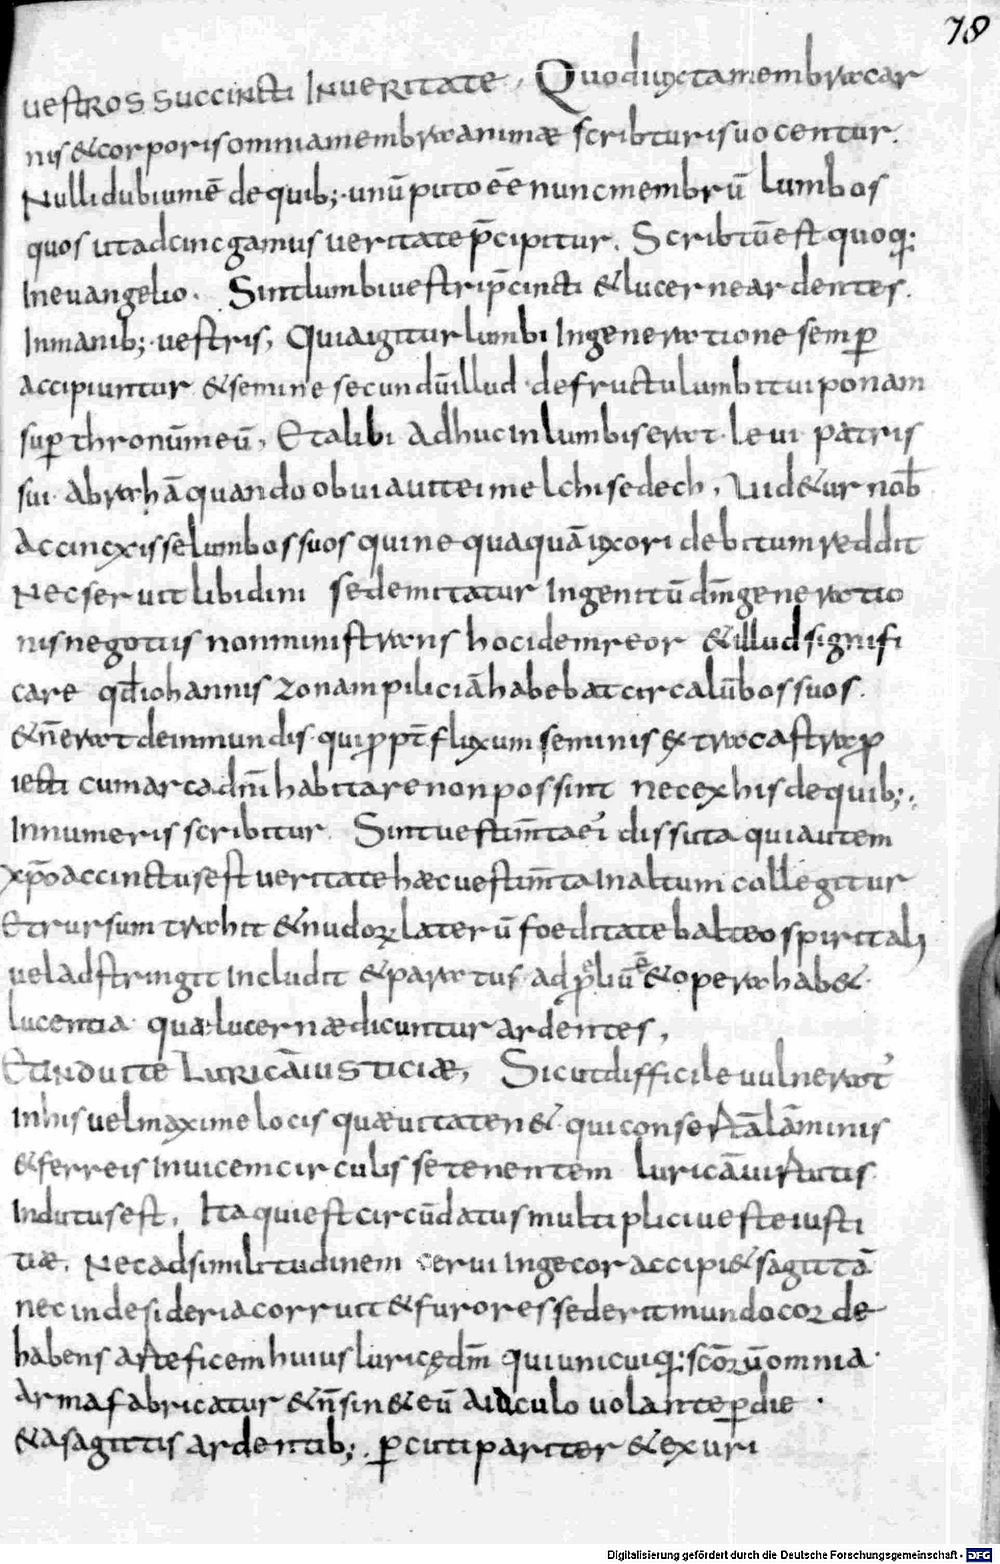 78
uestros succincti Inueritate, Quod iuxta membra car
nis & corporis omnia membra animæ scribturis uocentur.
Nulli dubium ē de quib; unū puto eē nunc membrū Lumbos
quos ut adcincgamus ueritate p̄cipitur. Scribtū est quoq;
In euangelio. Sint lumbi uestri p̄cincti & lucerne ardentes.
In manib; uestris, Quia igitur lumbi In generatione semp̱
accipiuntur & semine secundū illud de fructu lumbi tui ponam
sup̱ thronū meū, Et alibi Adhuc in lumbis erat leui patris
sui Abrahā quando obuiauit ei melchisedech, Uid&ur nob̄
Accincxisse lumbos suos qui nequaquā uxori debitum reddit
Nec seruit libidini sed emitatur Ingenitū dm̄ generatio
nis negotiis non ministrans hoc idem reor & illud signifi
care qd̄ iohannis zonam piliciā habebat circa lūbos suos.
& n̄ erat de inmundis qui p̱pt̄ fluxum seminis extra castra p̱
iecti cum arca dn̄i habitare non possint nec ex his de quib;
In numeris scribitur Sint uestim̄ta ei' dissuta qui autem
xp̄o accinctus est ueritate hæc uestim̄ta In altum collegitur
Et rursum trahit & nudoꝝ laterū foeditate balteo spiritali
uel adstringit Includit & paratus ad p̱liū & opera hab&
lucentia quæ lucernæ dicuntur ardentes,
Et induite Luricā iusticiæ, Sicut difficile uulnerat'
In his uel maxime locis quæ uitaten& qui consertā lāminis
& ferreis Inuicem circulis se tenentem luricā uirtutis
Indutus est, Ita qui est circūdatus multiplici ueste iusti
tiæ, Nec ad similitudinem cerui In gecor accipi& sagittā
nec in desideria corruit & furores sed erit mundo corde
habens arteficem huius luricę dm̄ qui unicuiq; scōꝝ ū omnia
Arma fabricatur & n̄ sin& eū A iaculo uolante p̱ die
& a sagittis ardentib; p̱cuti pariter & exuri
Digitalisierung gefördert durch die Deutsche Forschungsgemeinschaft - DFG